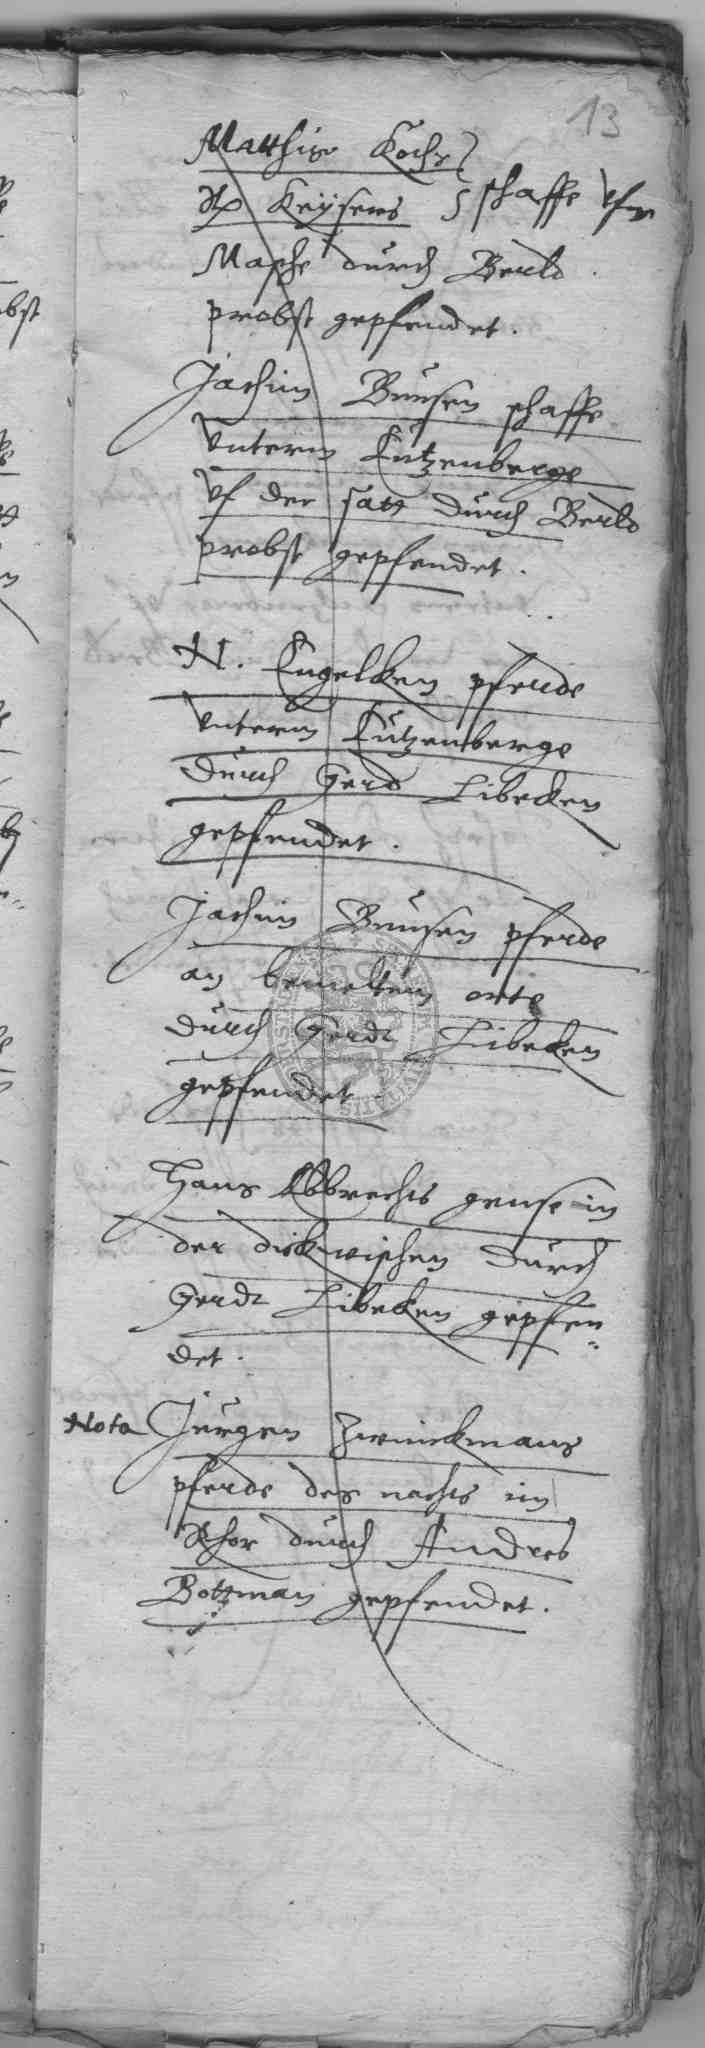 13
Matthias Kochs
Keysers schaffe vfm
Masche durch Berld
probst gepfendet.
Jachim Bunsen schaffe
vnterm Lutzenberge
vf der satt durch Berld
probst gepfendet.
N. Engelken pferde
vnterm Lutzenberge
durch Gerd Libeken
gepfendet.
Jachim Bunsen pferde
an bemeltem orte
durch Gerdt Libeken
gepfendet.
Hans Ebbrechts gense in
der dickwischen durch
Gerdt Libeken gepfen
det.
Nota Jurgen Zwinckmans
pferde des nachts im
Rhor durch Andres
Bottman gepfendet.